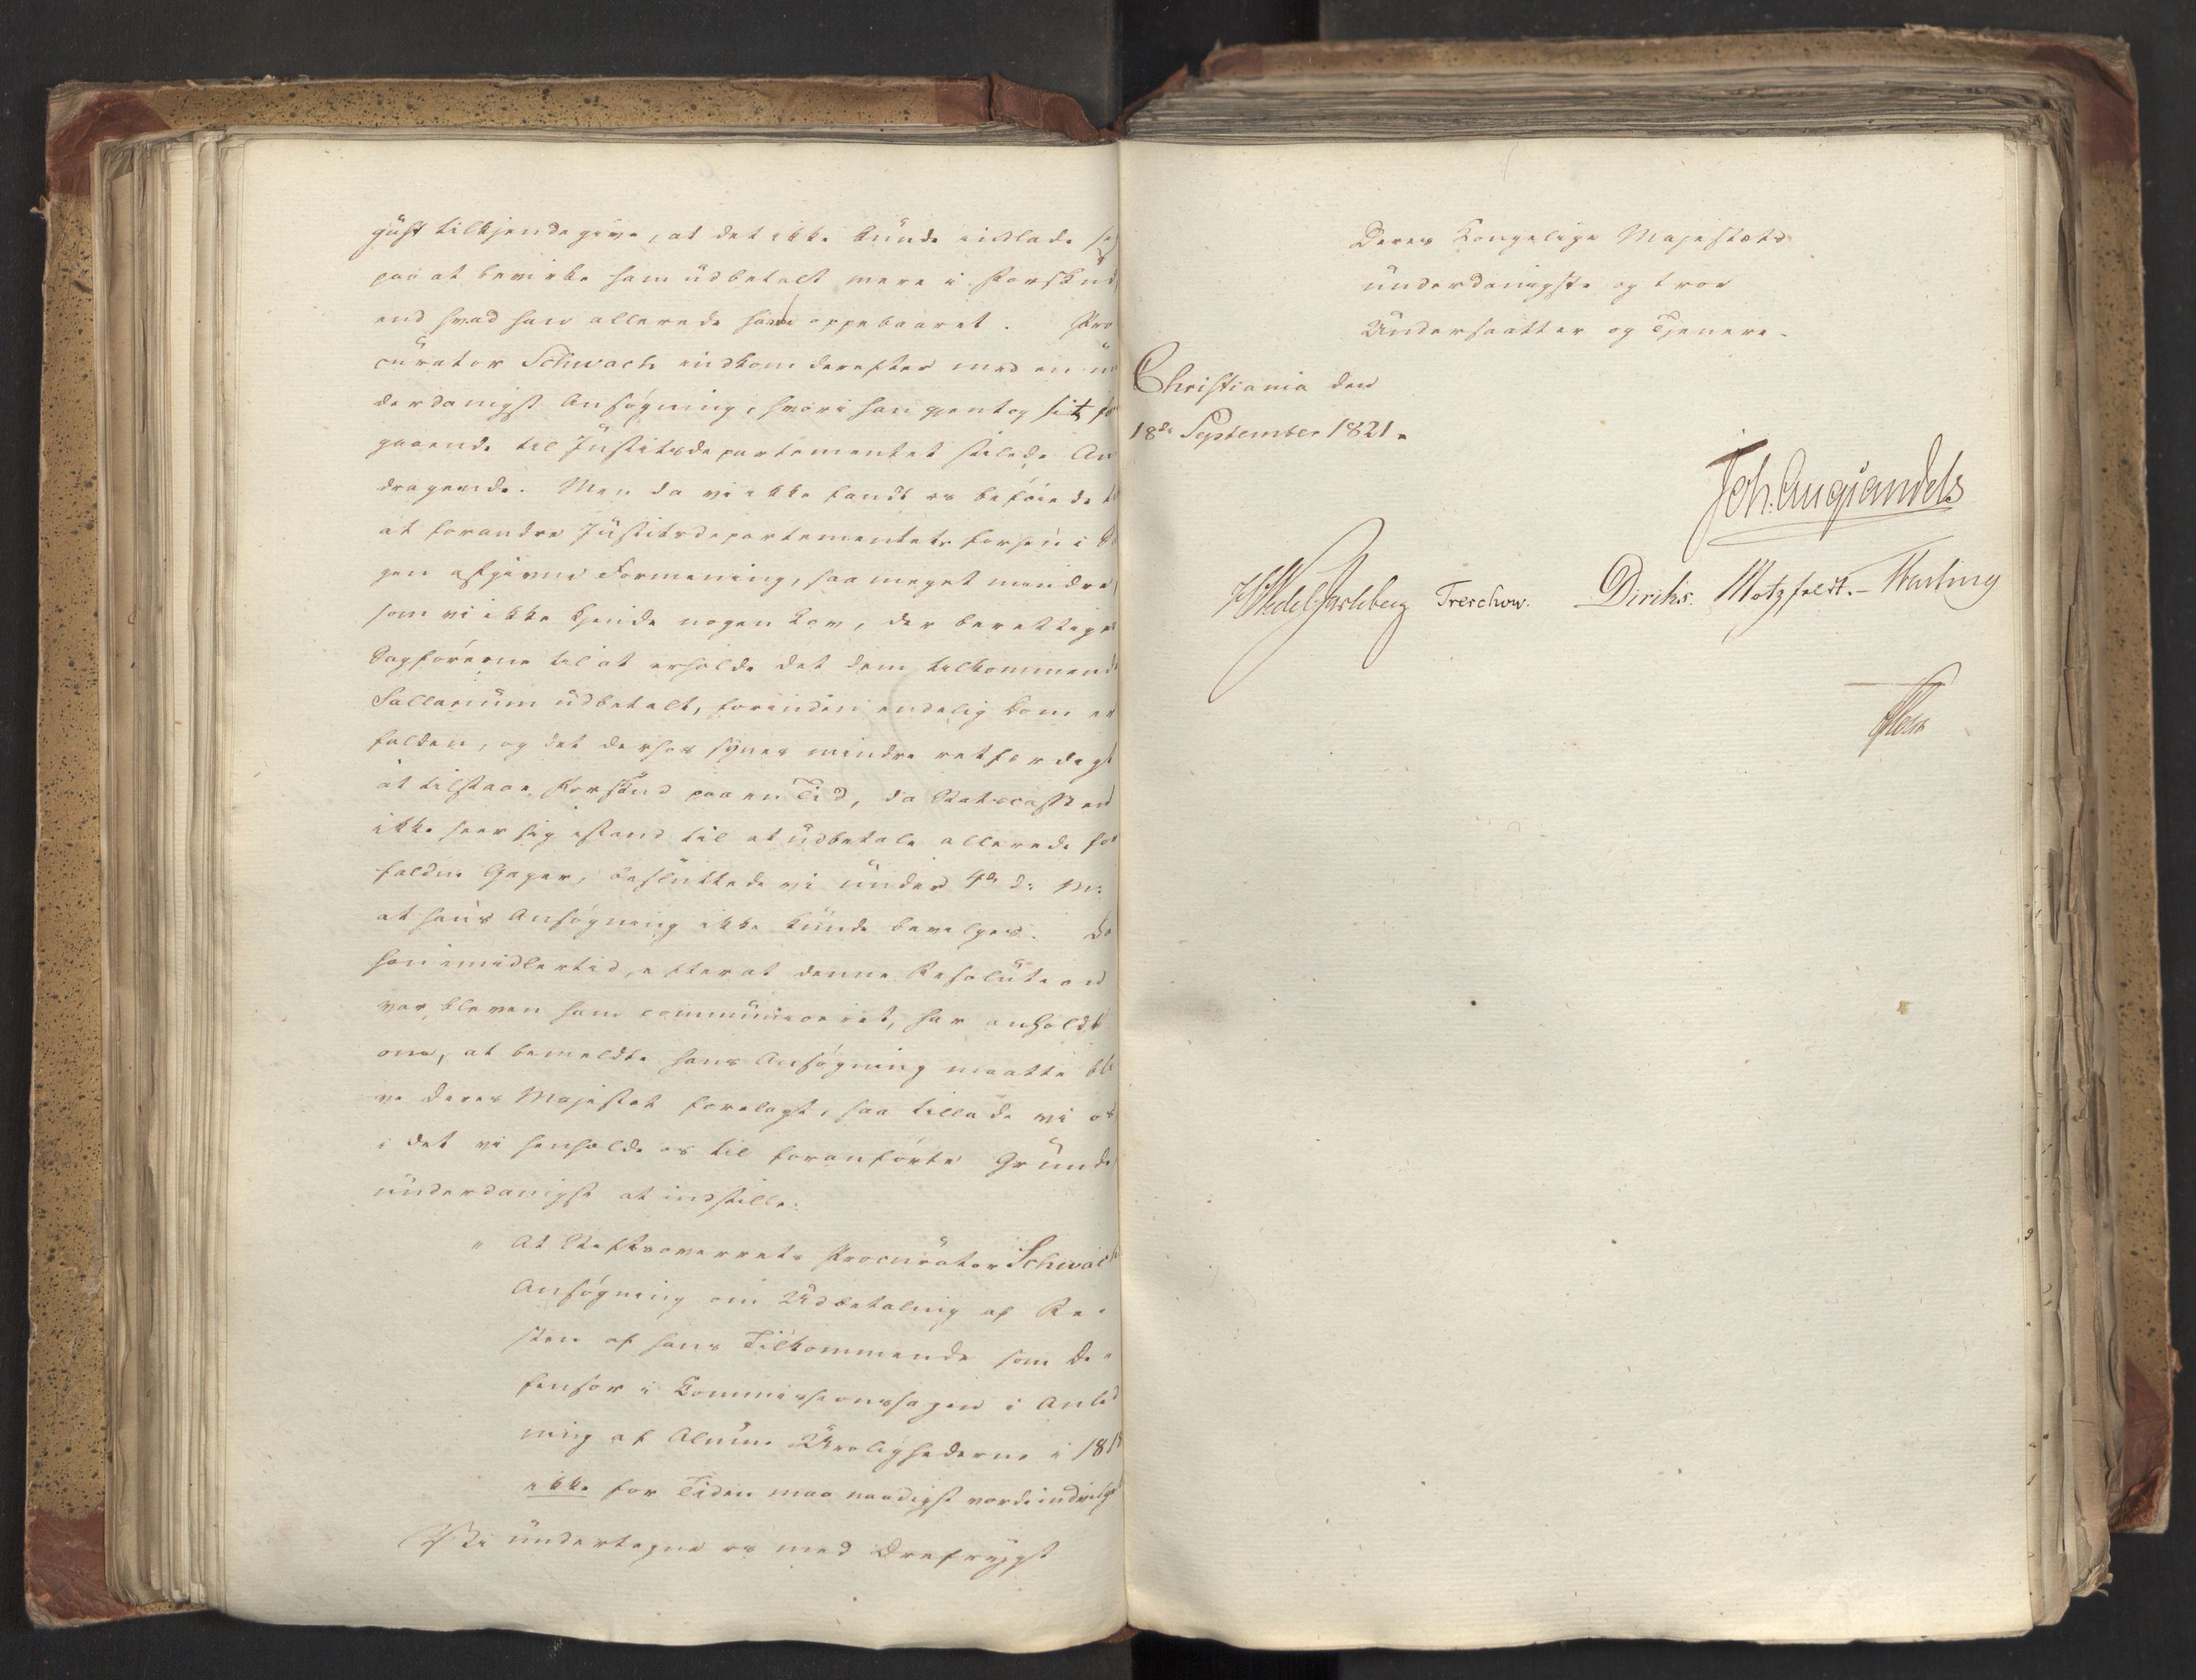 gust tilkjendegive, at det ikke kunde indlade sig
paa at bevirke ham udbetalt mere i Forskud,
end hvad han allerede havde oppebaaret. Pro
curator Schwach indkom derefter med en un
derdanigst Ansøgning, hvori han gjentog sit for
gaaende til Justitsdepartementet stilede An
dragende. Men da vi ikke fandt os beføiede til
at forandre Justitsdepartementets forhen i Sa
gen afgivne Formening, saa meget mindre,
som vi ikke kjende nogen Lov, der berettiger
Sagførerne til at erholde det dem tilkommende
Sallarium udbetalt, forinden endelig Dom er
falden, og det derhos synes mindre retfærdigt
at tilstaae Forskud paa en Tid, da Statscassen
ikke seer sig istand til at udbetale allerede for
faldne Gager, besluttede vi under 4de d: M:
at hans Ansøgning ikke kunde bevilges. Da
han imidlertid, efterat denne Resolution
var bleven ham communiceret, har anholdt
om, at bemeldte hans Ansøgning maatte bli
ve Deres Majestet forelagt, saa tillade vi os
i det vi henholde os til foranførte Grunde
underdanigst at indstille:
" At Stiftsoverrets Procurator Schwach
Ansøgning om Udbetaling af Re-
sten af hans Tilkommende som De-
fensor i Commissionssagen i Anled
ning af Almue Urolighederne i 1818
ikke for Tiden maa naadigst vorde indvilget
Vi undertegne os med Ærefrygt
Deres Kongelige Majestæts
underdanigste og troe
Undersaatter og Tjenere.
Christiania den
18de September 1821.
Joh. Aug. Sandels
HWedel Jarlsberg Treschow. Diriks. Motzfeldt. Fasting
Holst